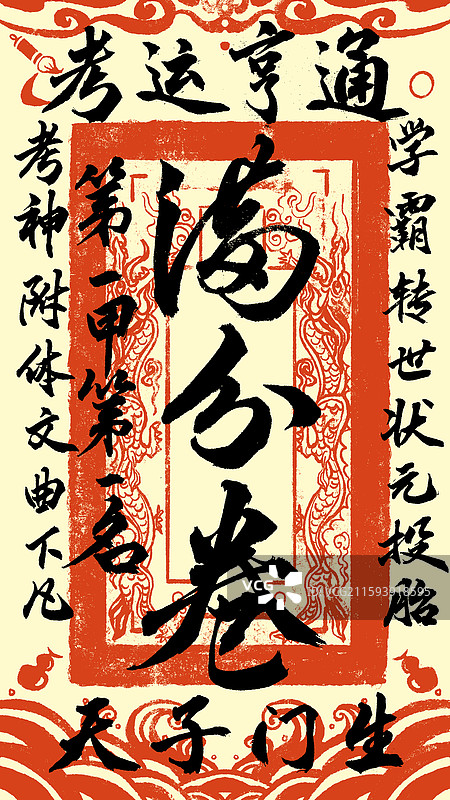 考运亨通
学霸转世状元投胎
满分卷
第一甲第一名
考神附体文曲下凡
天子门生
VCG
VCG211593918695